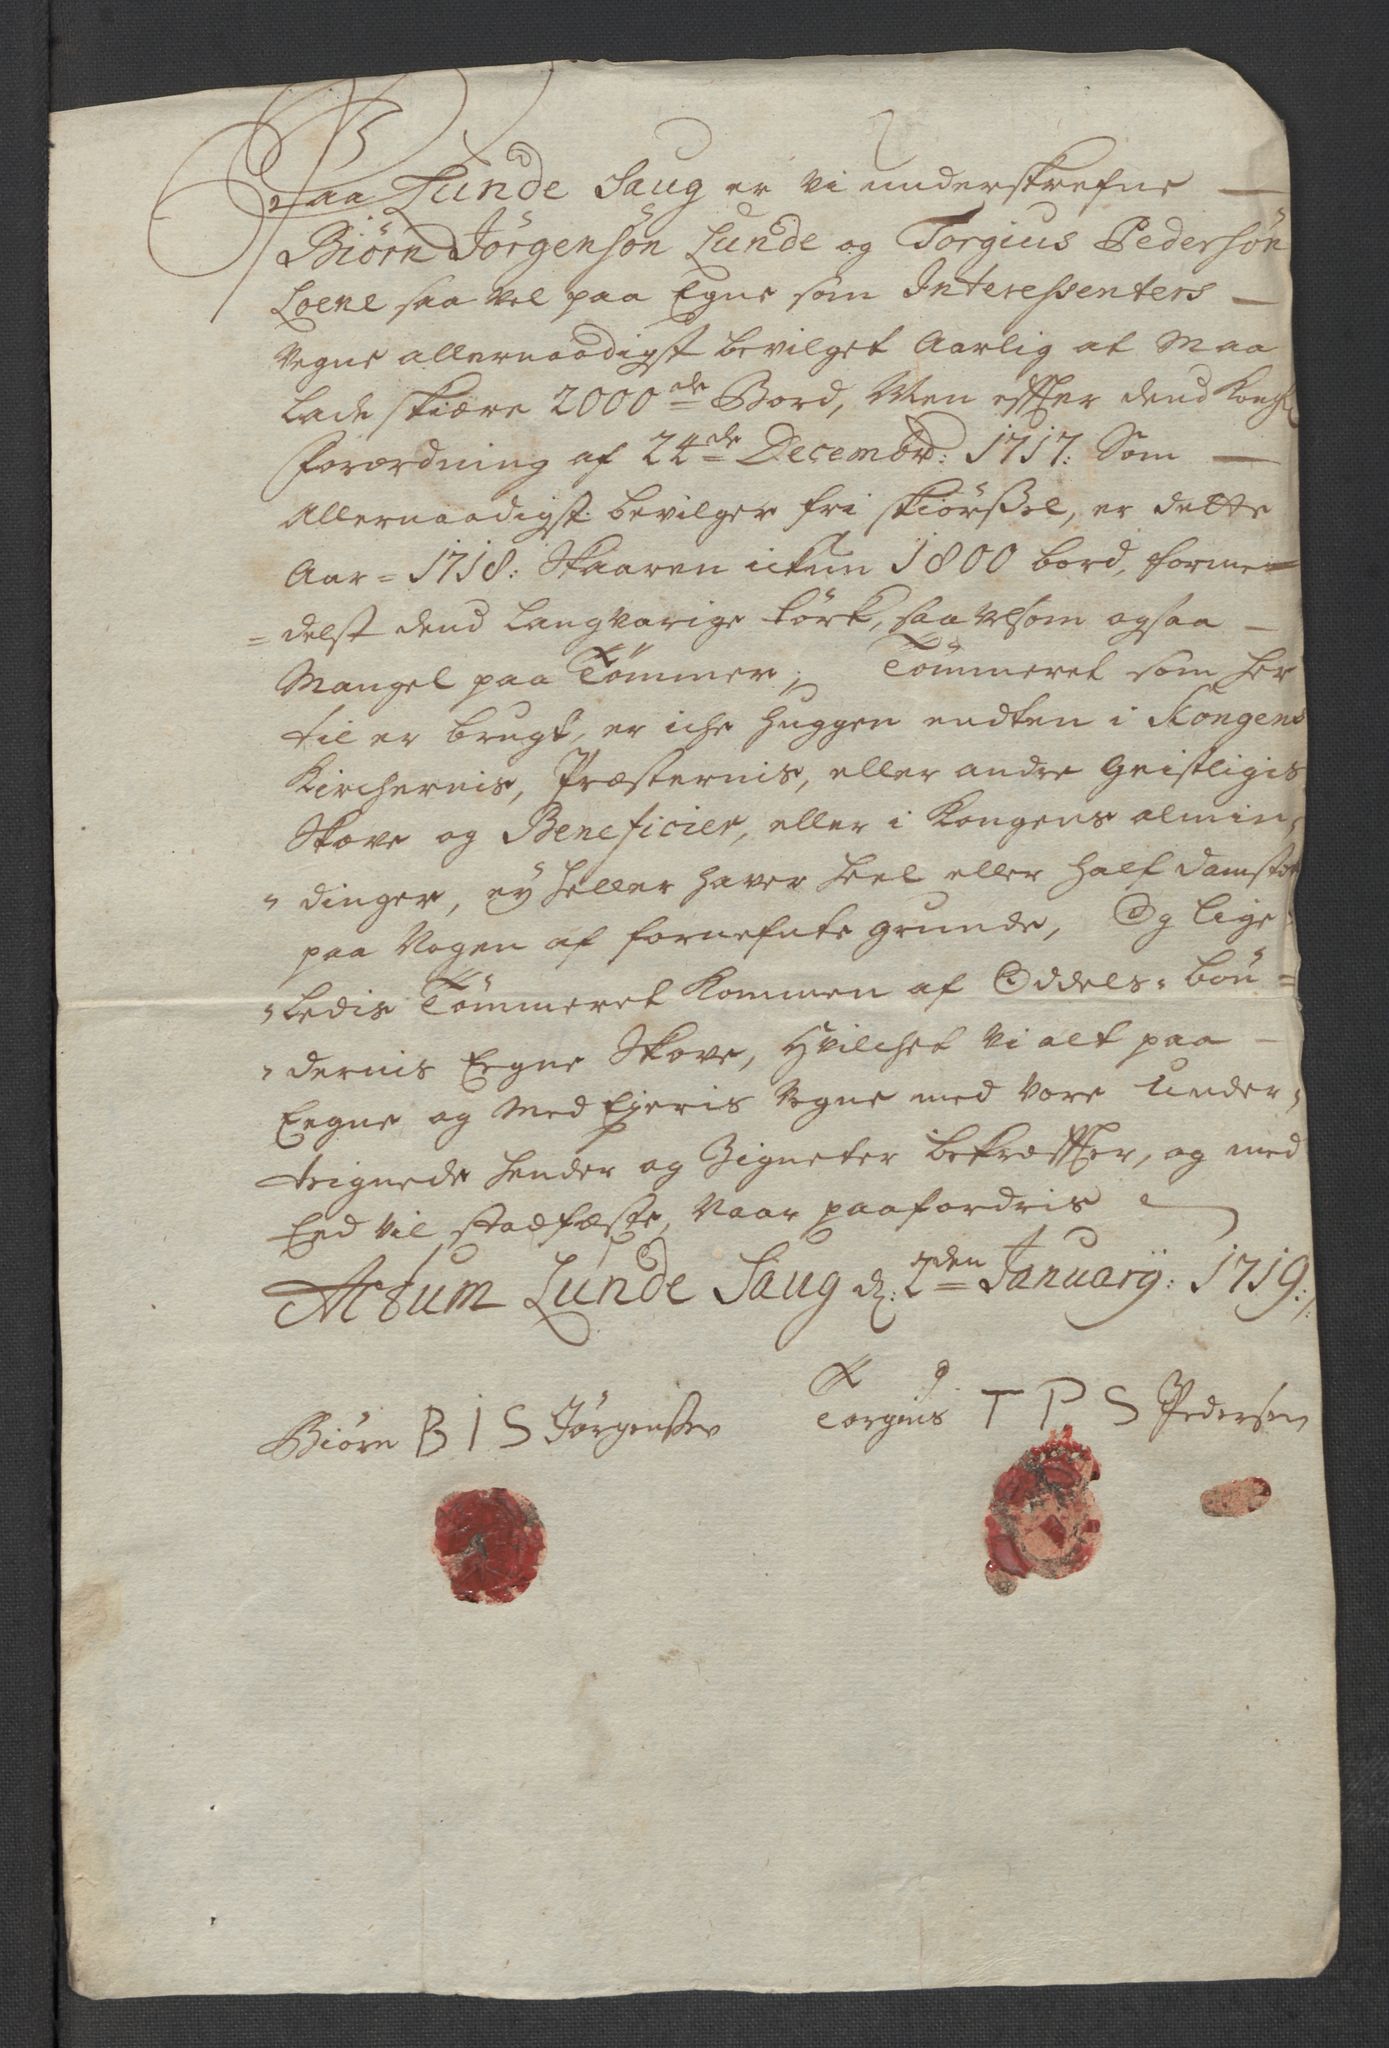 Paa Lunde Saug er vi underskrefne —
Biörn Jörgensön Lunde og Torgius Pedersön
Loene saa vel paa Egne som Interessenters —
Vegne allernaadigst bevilget Aarlig at Maa
Lade skiære 2000de Bord, Men effter dend Kongl
forordning af 24de Decembr: 1717: Som —
Allernaadigst bevilger fri skiörsel, er dette
Aar = 1718: Skaaren ickun 1800 bord, forme=
=delst dend Langvarige törk, saa velsom ogsaa —
Mangel paa Tömmer; Tömmeret som her
til er brugt, er iche huggen endten i Kongens
Kirchernis, Præsternis, eller andre Geistligis
Skove og Beneficier, eller i Kongens almin=
=dinger, ey heller haver heel eller half damsted
paa Nogen af fornefnte grunde, Og lige=
=ledis Tömmeret Kommen af Oddels=bön=
=dernis Eegne Skove, Hvilchet Vi alt paa —
Eegne og Med Ejeris Vegne med Vore Under=
tegnede hender og Zigneter bekræffter, og med
Eed vil stadfæste, Naar paafordris
Actum Lunde Saug d: 2den January: 1719:
Biörn B I S Jörgensen Torgius T P S Pedersen